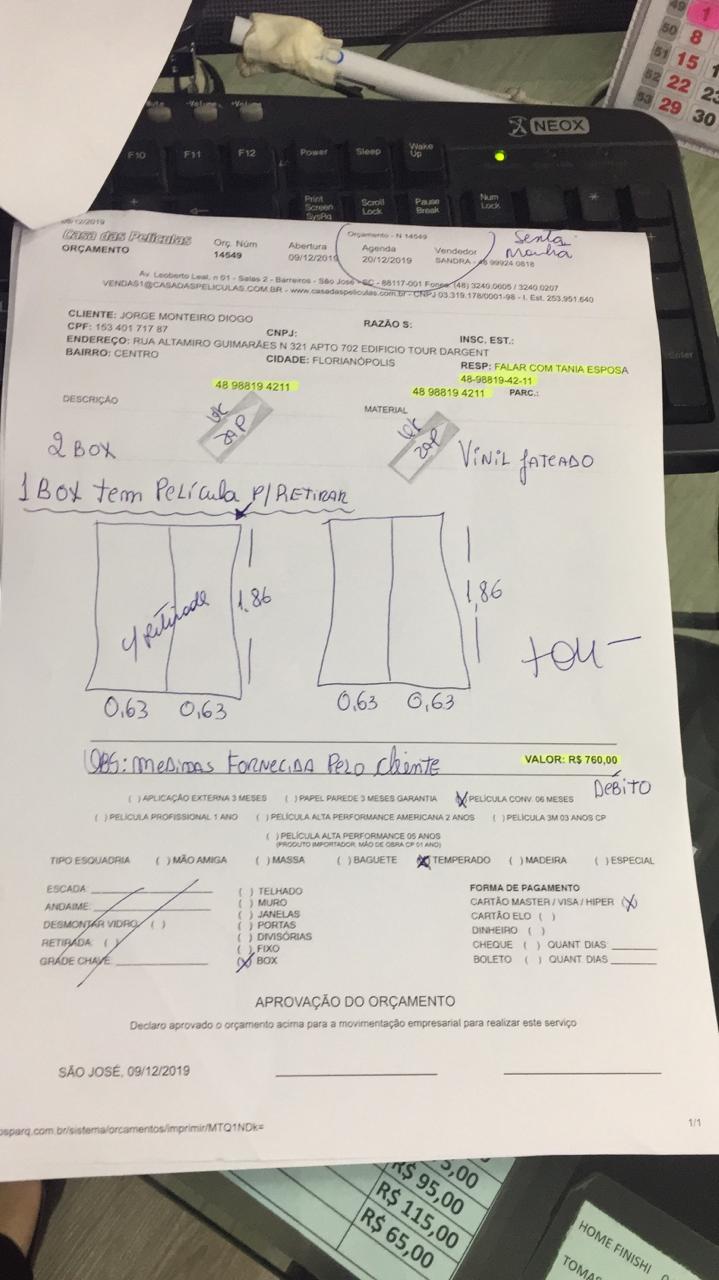 49 1
50 8
51 15 1
52 22 23
53 29 30
-Volume +Volume
NEOX
F10 F11 F12 Power Sleep Wake Up
Print Screen SysRq Scroll Lock Pause Break Num Lock
Enter
09/12/2019
Orçamento - N 14549
Casa das Películas
ORÇAMENTO
Orç. Núm
14549
Abertura
09/12/2019
Agenda
20/12/2019
Vendedor
SANDRA - 48 99924 0818
Sexta
Manhã
Av. Leoberto Leal, n 01 - Salas 2 - Barreiros - São José - SC - 88117-001 Fones (48) 3240.0605 / 3240.0207
VENDAS1@CASADASPELICULAS.COM.BR - www.casadaspeliculas.com.br - CNPJ 03.319.178/0001-98 - I. Est. 253.951.640
CLIENTE: JORGE MONTEIRO DIOGO RAZÃO S:
CPF: 153 401 717 87 CNPJ: INSC. EST.:
ENDEREÇO: RUA ALTAMIRO GUIMARÃES N 321 APTO 702 EDIFICIO TOUR DARGENT
BAIRRO: CENTRO CIDADE: FLORIANÓPOLIS RESP: FALAR COM TANIA ESPOSA
48-98819-42-11
48 98819 4211 48 98819 4211 PARC.:
DESCRIÇÃO MATERIAL
ZAP ZAP
2 BOX VINIL JATEADO
1 BOX tem Película P/RETIRAR
c/ Retirada
1,86 1,86
0,63 0,63 0,63 0,63
OBS: MEDIDAS FORNECIDA PELO Cliente VALOR: R$ 760,00
DEBITO
( ) APLICAÇÃO EXTERNA 3 MESES ( ) PAPEL PAREDE 3 MESES GARANTIA (X) PELÍCULA CONV. 06 MESES
( ) PELÍCULA PROFISSIONAL 1 ANO ( ) PELÍCULA ALTA PERFORMANCE AMERICANA 2 ANOS ( ) PELÍCULA 3M 03 ANOS CP
( ) PELÍCULA ALTA PERFORMANCE 05 ANOS
(PRODUTO IMPORTADOR, MÃO DE OBRA CP 01 ANO)
TIPO ESQUADRIA ( ) MÃO AMIGA ( ) MASSA ( ) BAGUETE (X) TEMPERADO ( ) MADEIRA ( ) ESPECIAL
ESCADA:
ANDAIME:
DESMONTAR VIDRO: ( )
RETIRADA: ( )
GRADE CHAVE:
( ) TELHADO
( ) MURO
( ) JANELAS
( ) PORTAS
( ) DIVISÓRIAS
( ) FIXO
(X) BOX
FORMA DE PAGAMENTO
CARTÃO MASTER / VISA / HIPER (X)
CARTÃO ELO ( )
DINHEIRO ( )
CHEQUE ( ) QUANT DIAS:
BOLETO ( ) QUANT DIAS:
APROVAÇÃO DO ORÇAMENTO
Declaro aprovado o orçamento acima para a movimentação empresarial para realizar este serviço
SÃO JOSÉ, 09/12/2019
osparq.com.br/sistema/orcamentos/imprimir/MTQ1NDk= 1/1
5,00
R$ 95,00
R$ 115,00
R$ 65,00
HOME FINISHI
TOMA